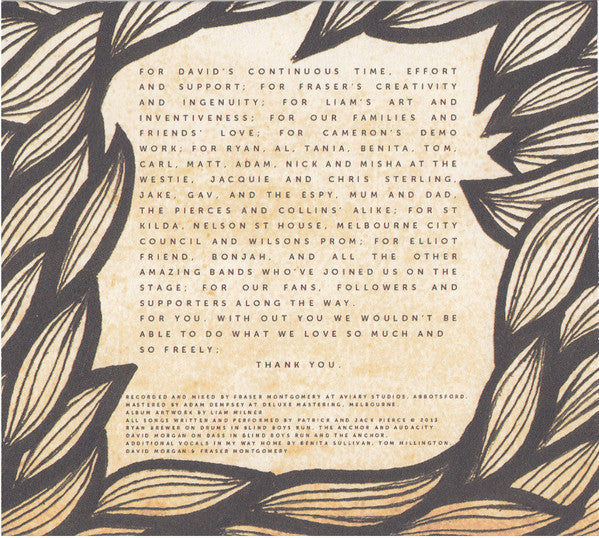 FOR DAVID'S CONTINUOUS TIME, EFFORT
AND SUPPORT; FOR FRASER'S CREATIVITY
AND INGENUITY; FOR LIAM'S ART AND
INVENTIVENESS; FOR OUR FAMILIES AND
FRIENDS' LOVE; FOR CAMERON'S DEMO
WORK; FOR RYAN, AL, TANIA, BENITA, TOM,
CARL, MATT, ADAM, NICK AND MISHA AT THE
WESTIE, JACQUIE AND CHRIS STERLING,
JAKE, GAV, AND THE ESPY, MUM AND DAD,
THE PIERCES AND COLLINS' ALIKE; FOR ST
KILDA, NELSON ST HOUSE, MELBOURNE CITY
COUNCIL AND WILSONS PROM; FOR ELLIOT
FRIEND, BONJAH, AND ALL THE OTHER
AMAZING BANDS WHO'VE JOINED US ON THE
STAGE; FOR OUR FANS, FOLLOWERS AND
SUPPORTERS ALONG THE WAY.
FOR YOU. WITH OUT YOU WE WOULDN'T BE
ABLE TO DO WHAT WE LOVE SO MUCH AND
SO FREELY;
THANK YOU.
RECORDED AND MIXED BY FRASER MONTGOMERY AT AVIARY STUDIOS, ABBOTSFORD.
MASTERED BY ADAM DEMPSEY AT DELUXE MASTERING, MELBOURNE.
ALBUM ARTWORK BY LIAM MILNER
ALL SONGS WRITTEN AND PERFORMED BY PATRICK AND JACK PIERCE © 2013
RYAN BREWER ON DRUMS IN BLIND BOYS RUN, THE ANCHOR AND AUDACITY.
DAVID MORGAN ON BASS IN BLIND BOYS RUN AND THE ANCHOR.
ADDITIONAL VOCALS IN MY WAY HOME BY BENITA SULLIVAN, TOM HILLINGTON,
DAVID MORGAN & FRASER MONTGOMERY